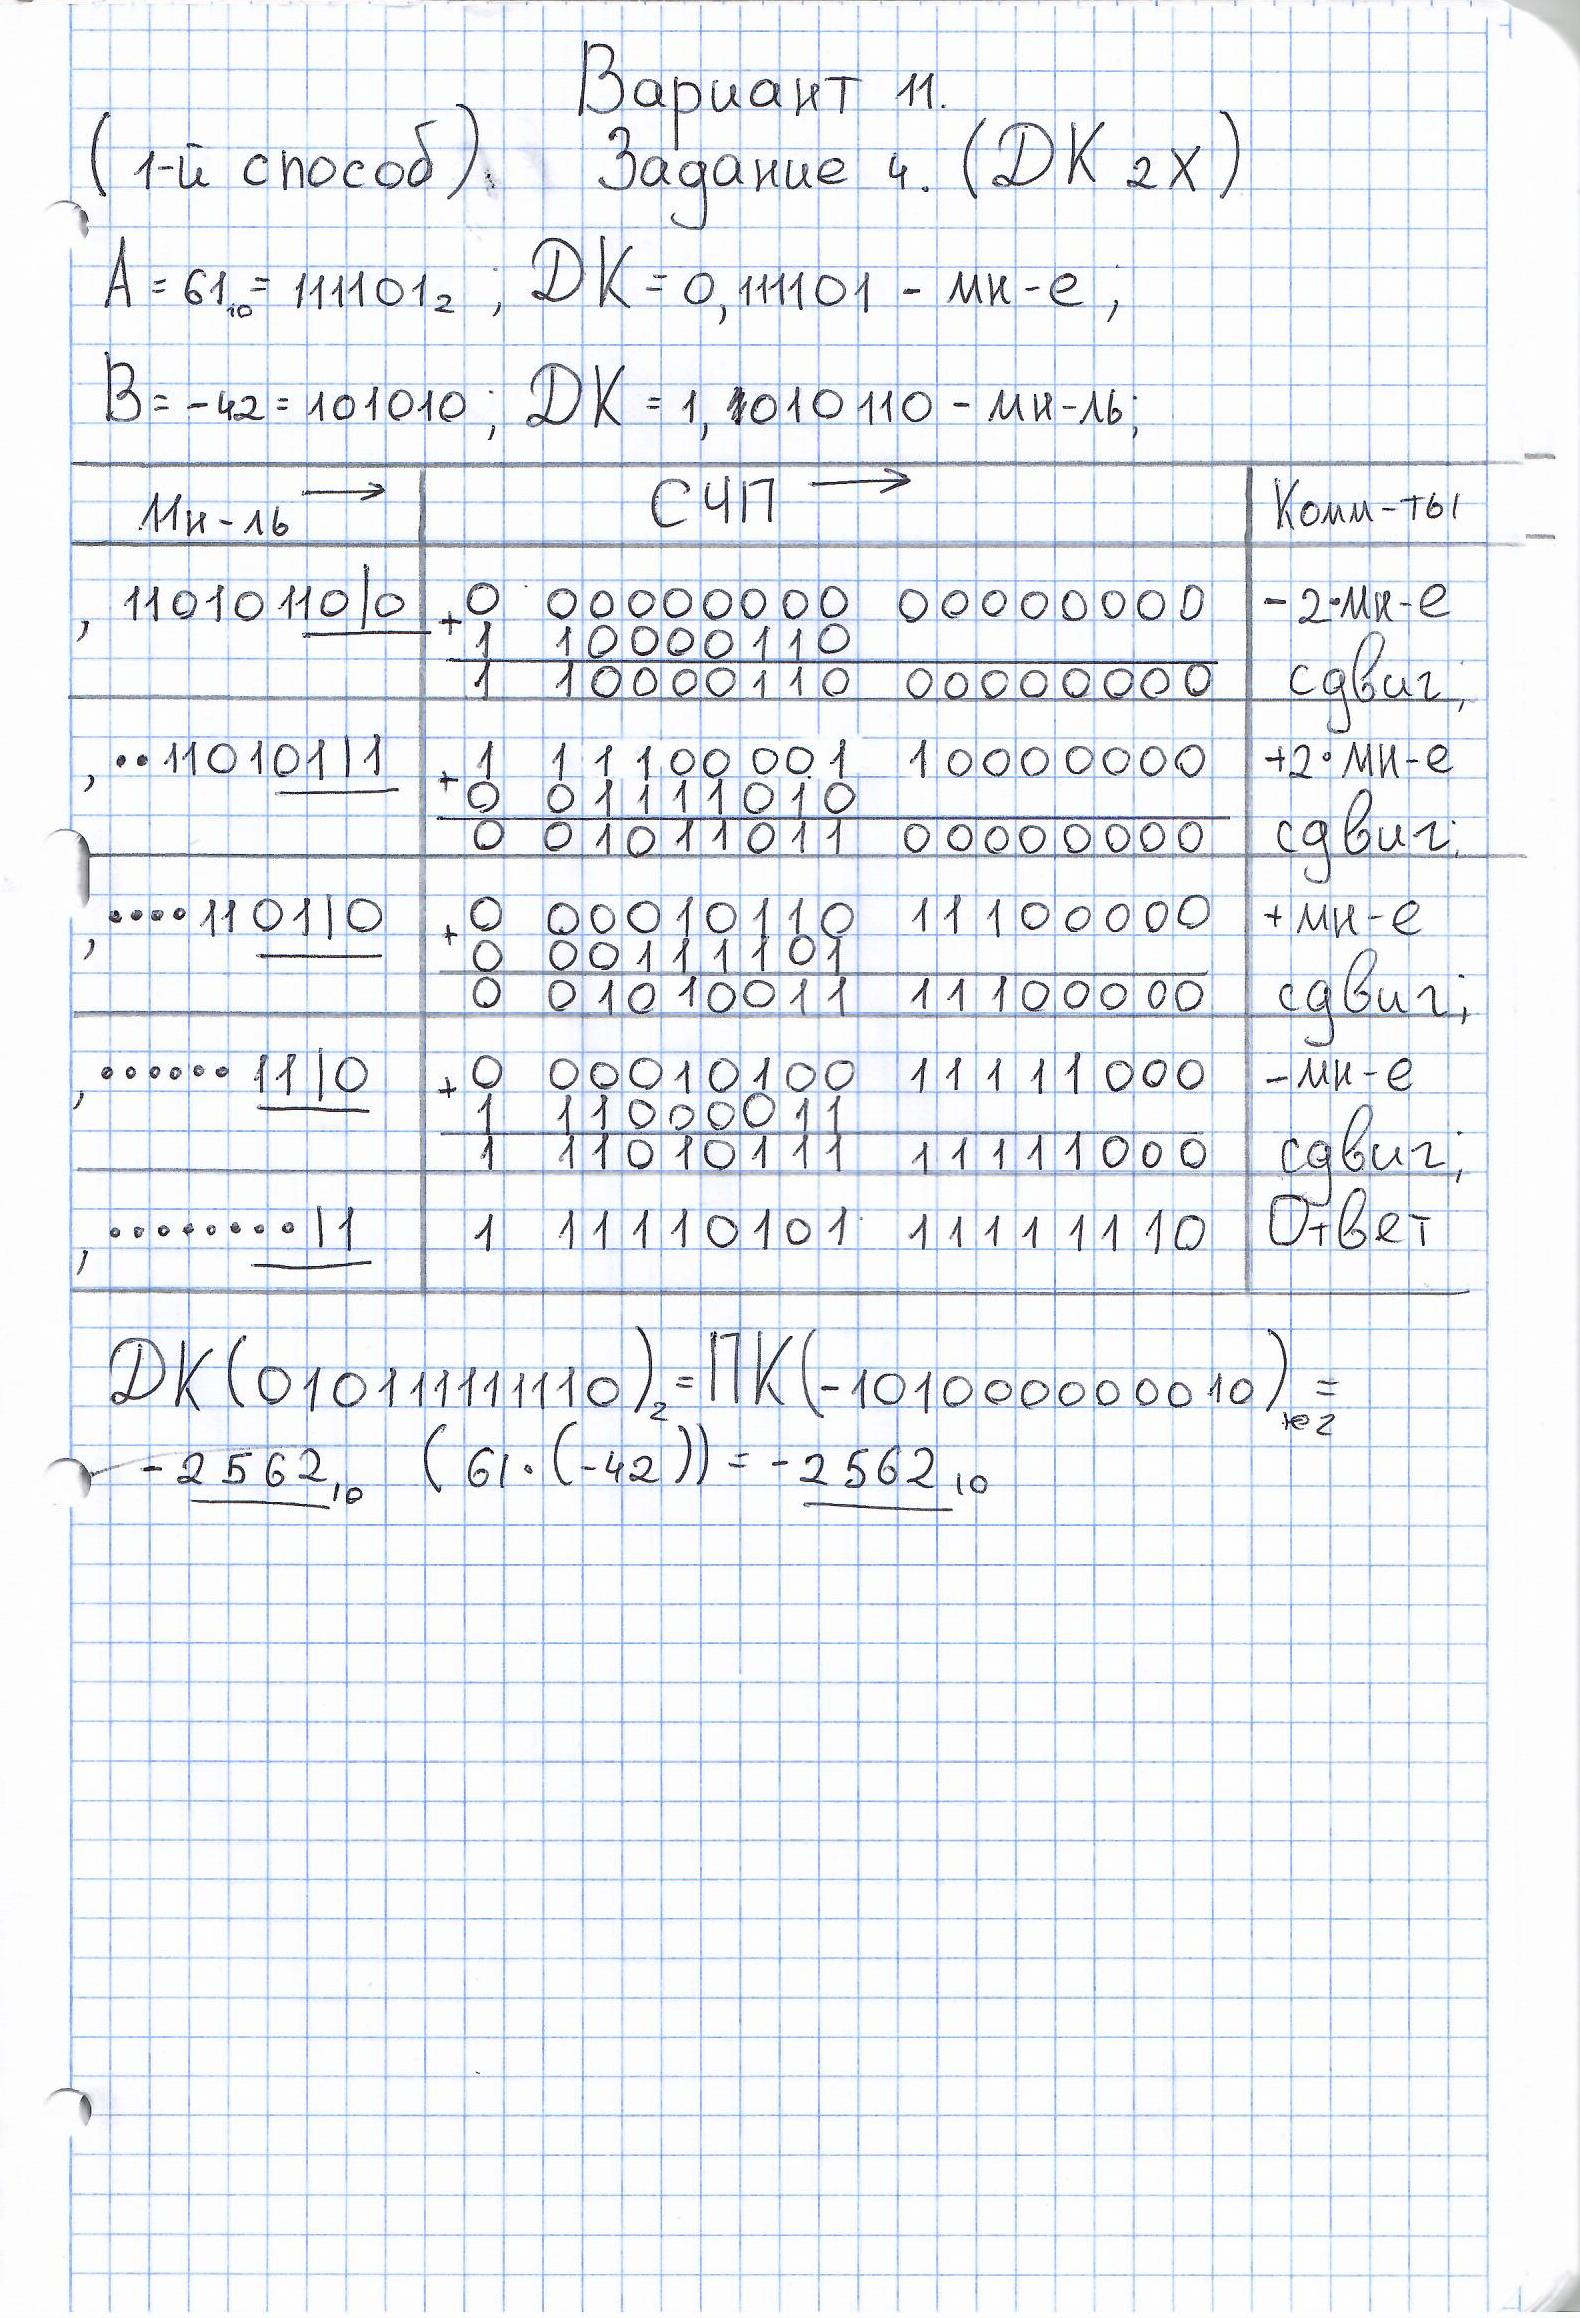 Вариант 11.
(1-й способ). Задание 4. (ДК 2Х)
А = 61₁₀ = 111101₂ ; ДК = 0,111101 - мн-е ;
В = -42 = 101010; ДК = 1,1010110 - мн-ль;
Мн-ль → СЧП → Комм-ты
, 11010110|0 + 0 00000000 00000000 -2·мн-е
1 10000110
1 10000110 00000000 сдвиг;
, ··110101|1 + 1 11100001 10000000 +2·мн-е
0 01111010
0 01011011 00000000 сдвиг;
, ····1101|0 + 0 00010110 11100000 +мн-е
0 00111101
0 01010011 11100000 сдвиг;
, ······11|0 + 0 00010100 11111000 -мн-е
1 11000011
1 11010111 11111000 сдвиг;
, ········|1 1 11110101 11111110 Ответ
ДК(010111111110)₂ = ПК(-101000000010)₂ =
-2562₁₀ (61·(-42)) = -2562₁₀